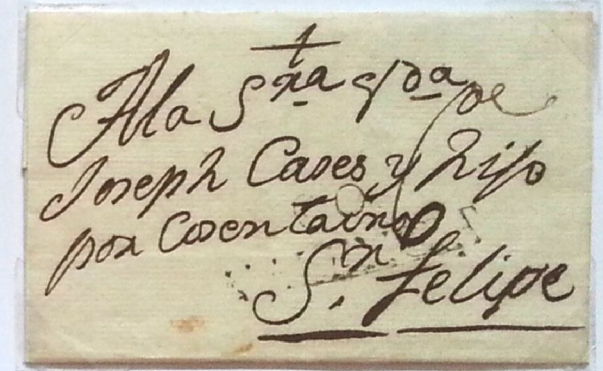 A la S.ra V.da de
Joseph Cases y hijo
por Cosentaina
S.n Felipe